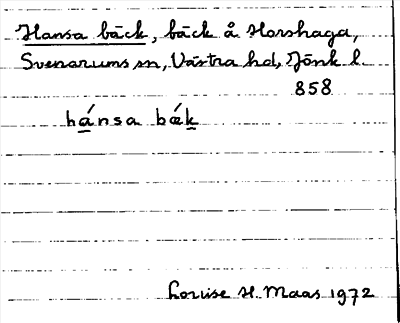 Hansa bäck, bäck å Horshaga,
Svenarums sn, Västra hd, Jönk l.
858
hánsa bǽk
Louise H. Maas 1972